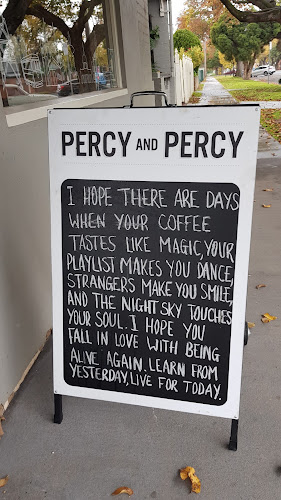 PERCY AND PERCY
I HOPE THERE ARE DAYS
WHEN YOUR COFFEE
TASTES LIKE MAGIC, YOUR
PLAYLIST MAKES YOU DANCE,
STRANGERS MAKE YOU SMILE,
AND THE NIGHT SKY TOUCHES
YOUR SOUL. I HOPE YOU
FALL IN LOVE WITH BEING
ALIVE AGAIN. LEARN FROM
YESTERDAY, LIVE FOR TODAY.